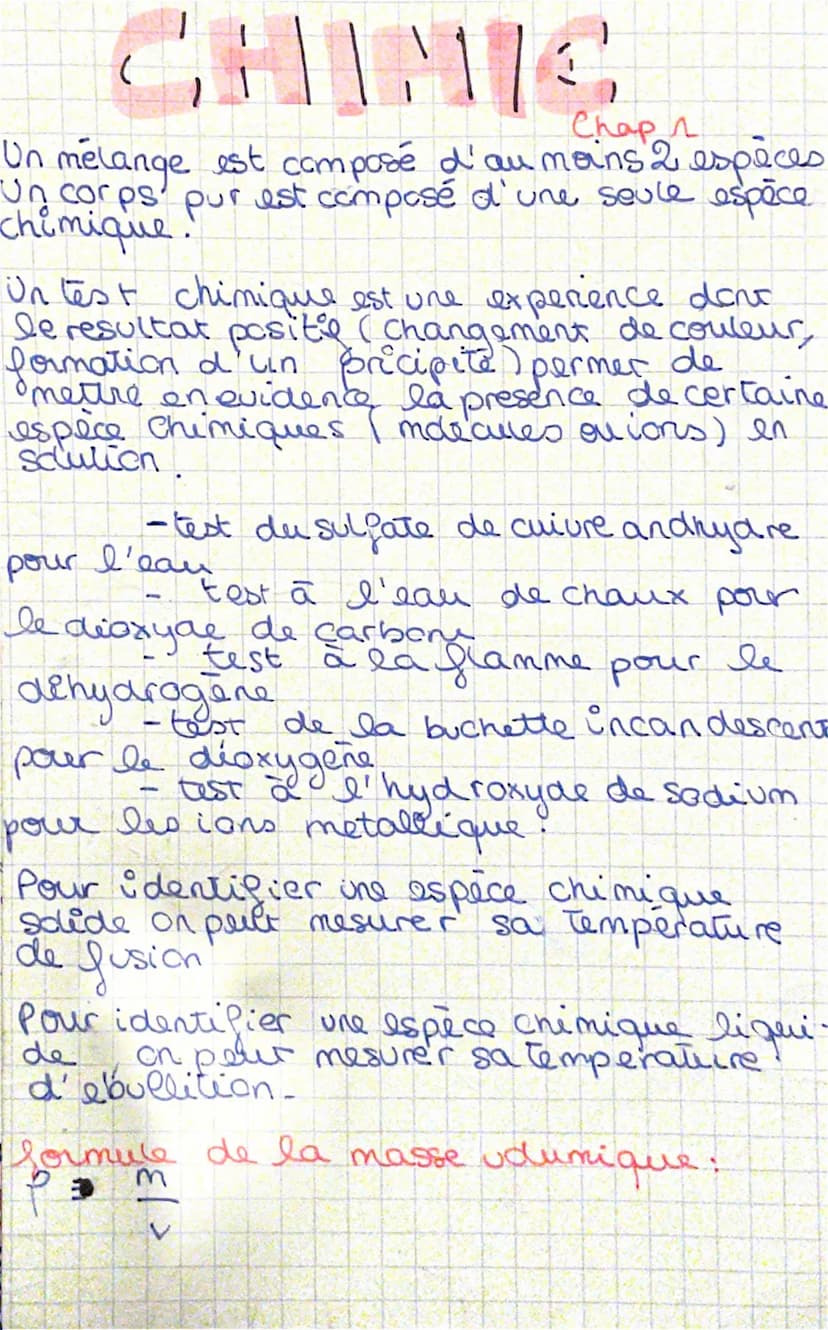 CHIMIE
Chap 1
Un mélange est composé d'au moins 2 espèces
Un corps pur est composé d'une seule espèce
chimique.
Un test chimique est une experience dont
le resultat positif (changement de couleur,
formation d'un précipité) permet de
mettre en evidence la presence de certaine
espèce chimiques (molécules ou ions) en
solution.
- test du sulfate de cuivre andhydre
pour l'eau
- test à l'eau de chaux pour
le dioxyde de carbone
- test à la flamme pour le
dihydrogène
- test de la buchette incandescent
pour le dioxygène
- test à l'hydroxyde de sodium
pour les ions metallique.
Pour identifier une espèce chimique
solide on peut mesurer sa température
de fusion
Pour identifier une espèce chimique liqui-
de, on peut mesurer sa température
d'ebullition.
formule de la masse volumique :
ρ = m
v